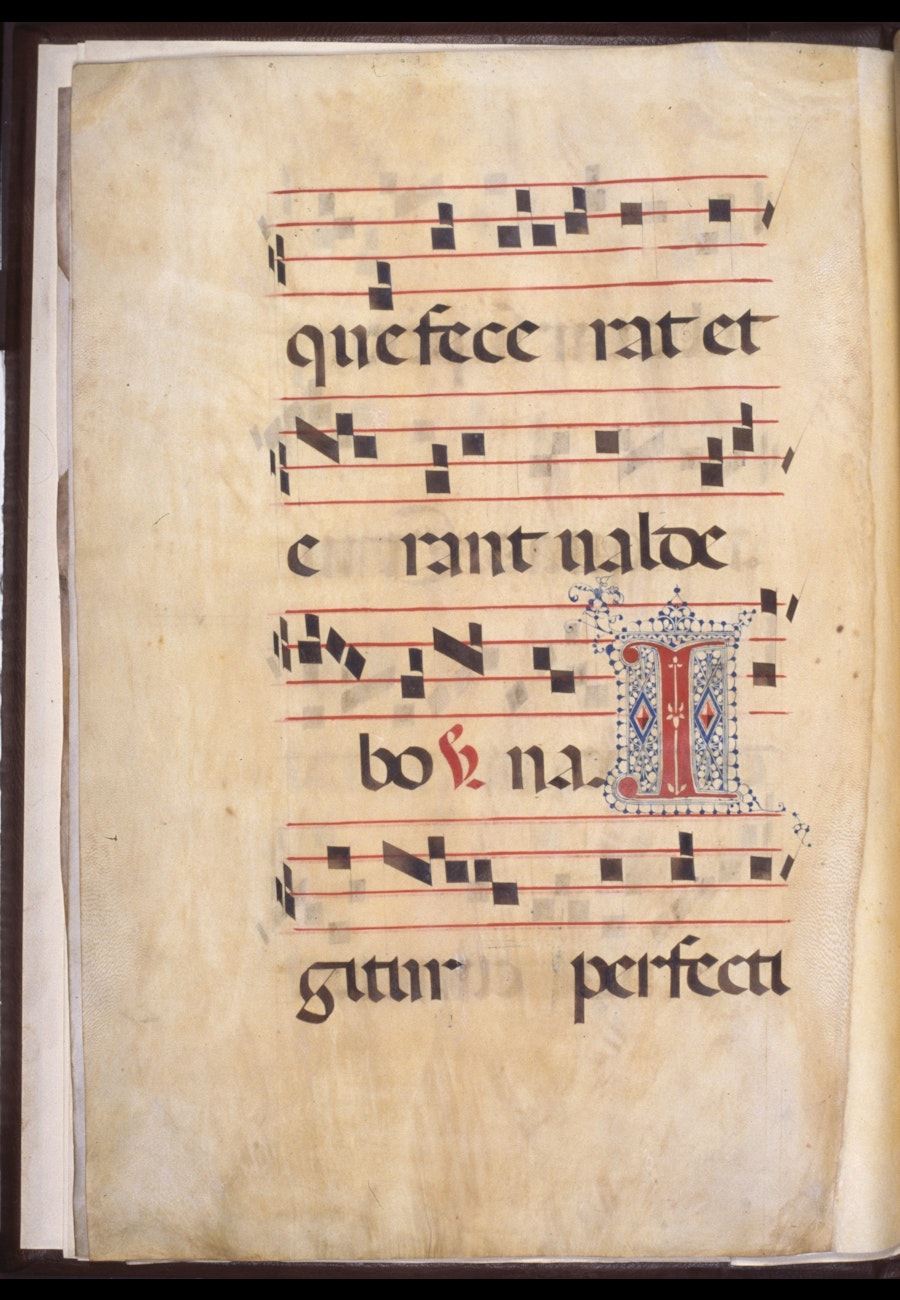 que fece rat et
e rant ualde
bo ℣. na. I
gitur perfecti